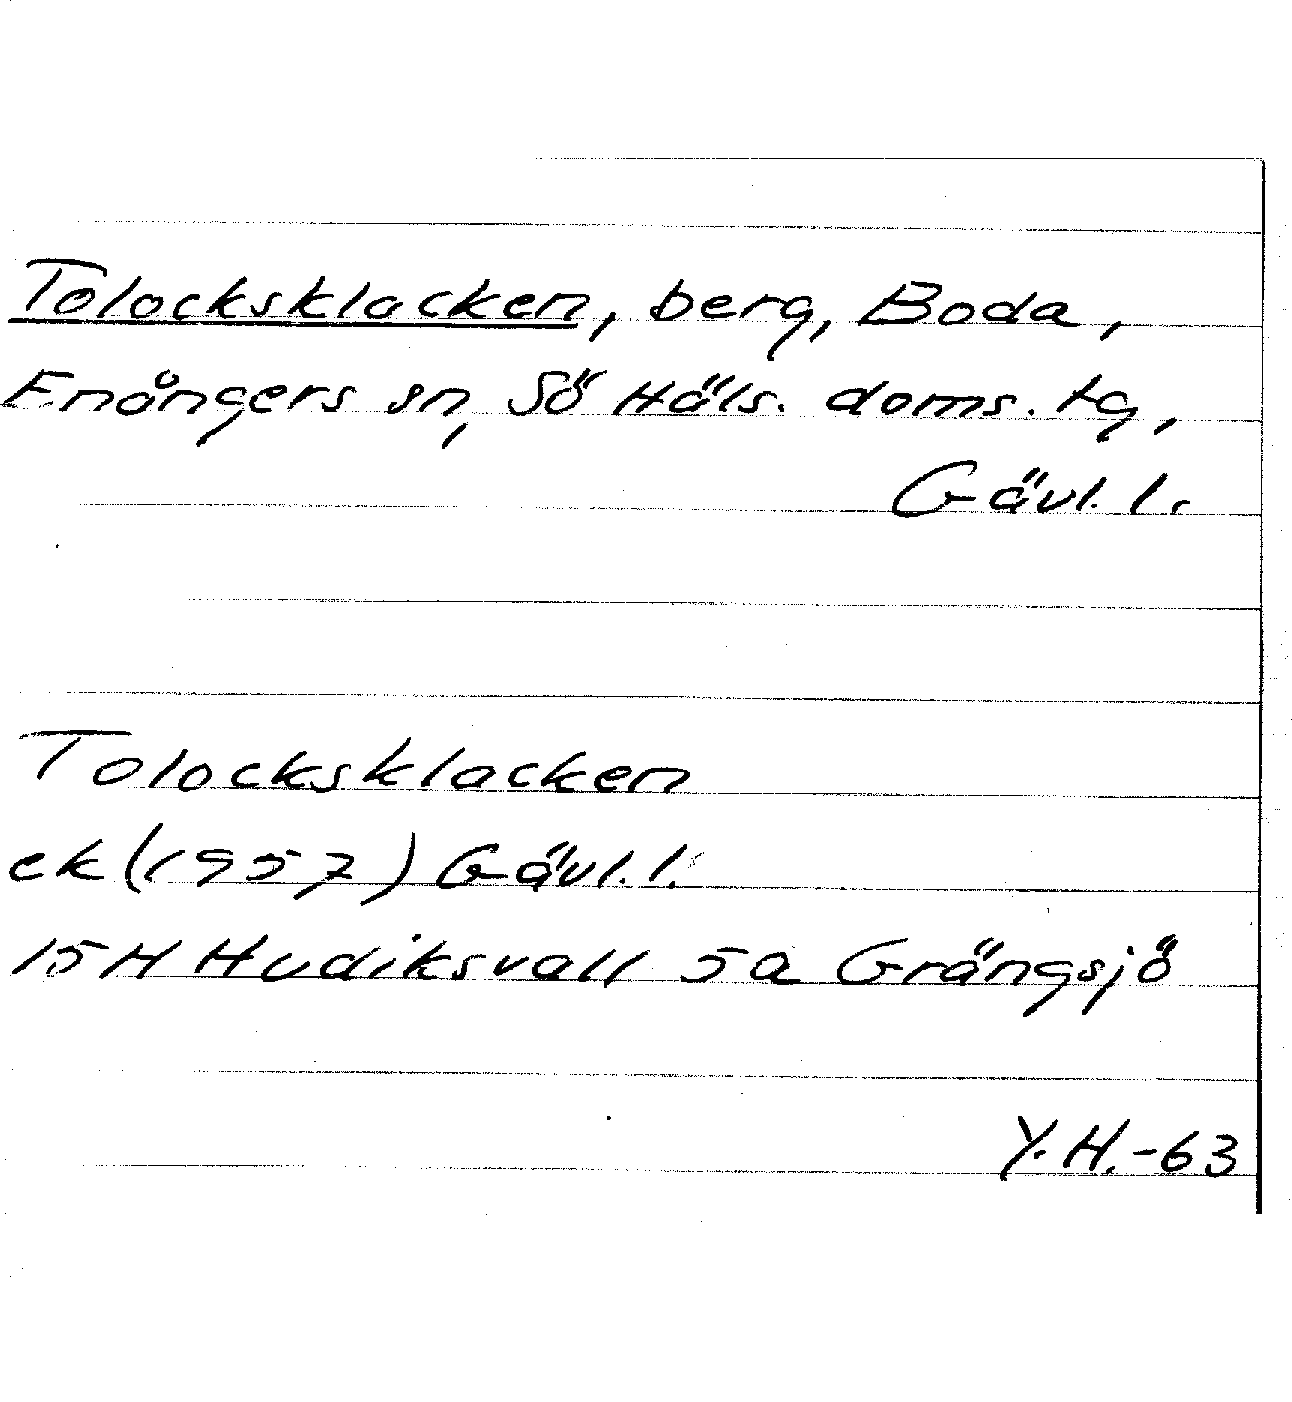 Tolocksklacken, berg, Boda,
Enångers sn, Sö Häls. doms. tg,
Gävl. l.
Tolocksklacken
ek (1957) Gävl. l.
15H Hudiksvall 5a Grängsjö
Y.H.-63